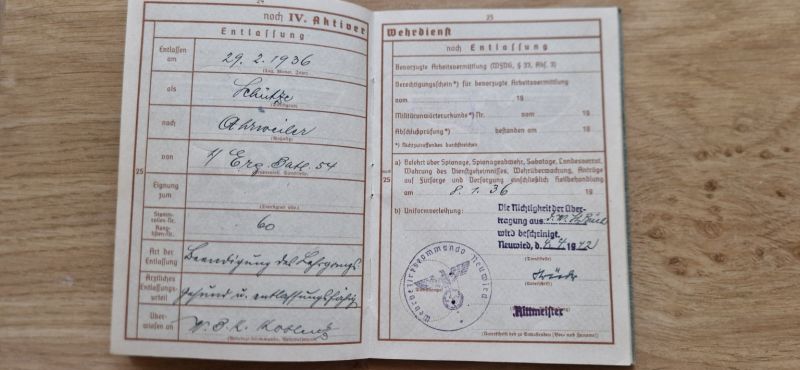 24
noch IV. Aktiver
Entlassung
Entlassen am
29. 2. 1936
(Tag, Monat, Jahr)
als
Schütze
(Dienstgrad)
nach
Ahrweiler
(Wohnort)
von
Erg. Batl. 54
25
Eignung zum
(Dienstgrad usw.)
Stammrollen-Nr.
Ranglisten-Nr.
60
Art der Entlassung
Beendigung des Lehrgangs
Ärztliches Entlassungsurteil
gesund u. entlassungsfähig
Überwiesen an
W.B.K. Koblenz
25
Wehrdienst
noch Entlassung
Bevorzugte Arbeitsvermittlung (WFVG, § 37, Abs. 2)
Berechtigungsschein*) für bevorzugte Arbeitsvermittlung
vom 19
Militäranwärterurkunde*) Nr. vom 19
Abschlußprüfung*) bestanden am 19
*) Nichtzutreffendes durchstreichen
noch 25
a) Belehrt über Spionage, Spionageabwehr, Sabotage, Landesverrat,
Wahrung des Dienstgeheimnisses, Wehrüberwachung, Anträge
auf Fürsorge und Versorgung einschließlich Heilbehandlung
am 8. 1. 36 19
b) Uniformverleihung:
Die Richtigkeit der Über-
tragung aus
wird bescheinigt.
Neuwied, d. 1942
(Dienststelle)
Wehrbezirkskommando Neuwied
(Unterschrift)
Rittmeister